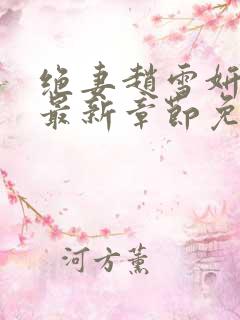 绝妻赵雪妍
最新章節免
河方薰